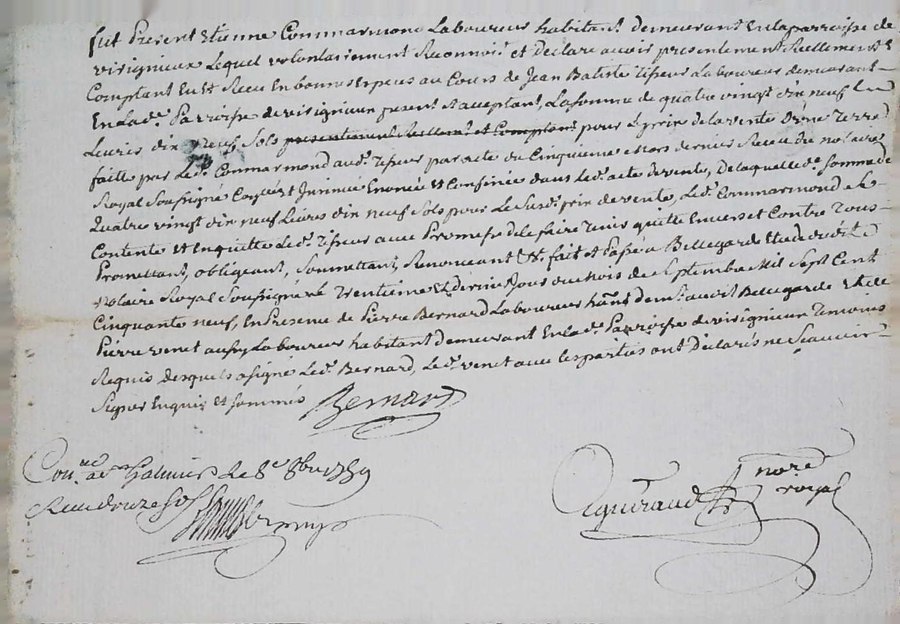 fut Présent Etienne Commarmond Laboureur habitant demeurant en la parroisse de
virignieux Lequel volontairement Reconnoit et Declare avoir presentement Reellement &
Comptant Eu et Receu En bonnes espeus au Cours de Jean Batiste Tisseur Laboureur demeurant
En lad.e Parroisse de virignieux present & acceptant, La somme de quatre vingt dix neuf
Livres dix neuf sols presentement reellement et Comptant pour le prix de la vente D'une Terre
faitte par Led. Commarmond aud. Tisseur par acte du Cinquieme mars dernier Receu du notaire
Royal Soussigné et Insinué Enoncé et Confinée dans led. acte de vente, De laquelle d.e somme de
Quatre vingt dix neuf Livres dix neuf sols pour Le Susd. prix de vente, Led. Commarmond se
Contente et En quitte Led. Tisseur avec Promesse de le faire Tenir quitte Envers et Contre Tous
Promettant, obligeant, Soumettant, Renonceant &c. fait et Passé a Bellegarde Etude dud.
Notaire Royal Soussigné le Trentieme et Dernier Jour du mois de Septembre Mil Sept Cent
Cinquante neuf, En Presence de Pierre Bernard Laboureur hant demt. aud. Bellegarde & de
Pierre venet aussy Laboureur habitant demeurant En lad.e Parroisse de virignieux Temoins
Requis desquels a signé Led. Bernard, Led. venet avec les parties ont Declarés ne Scavoir
Signer Enquis et Sommés Bernard
Con.lé a St Galmier Le 8e 8bre 1759
Receu douze sols
nore
royal